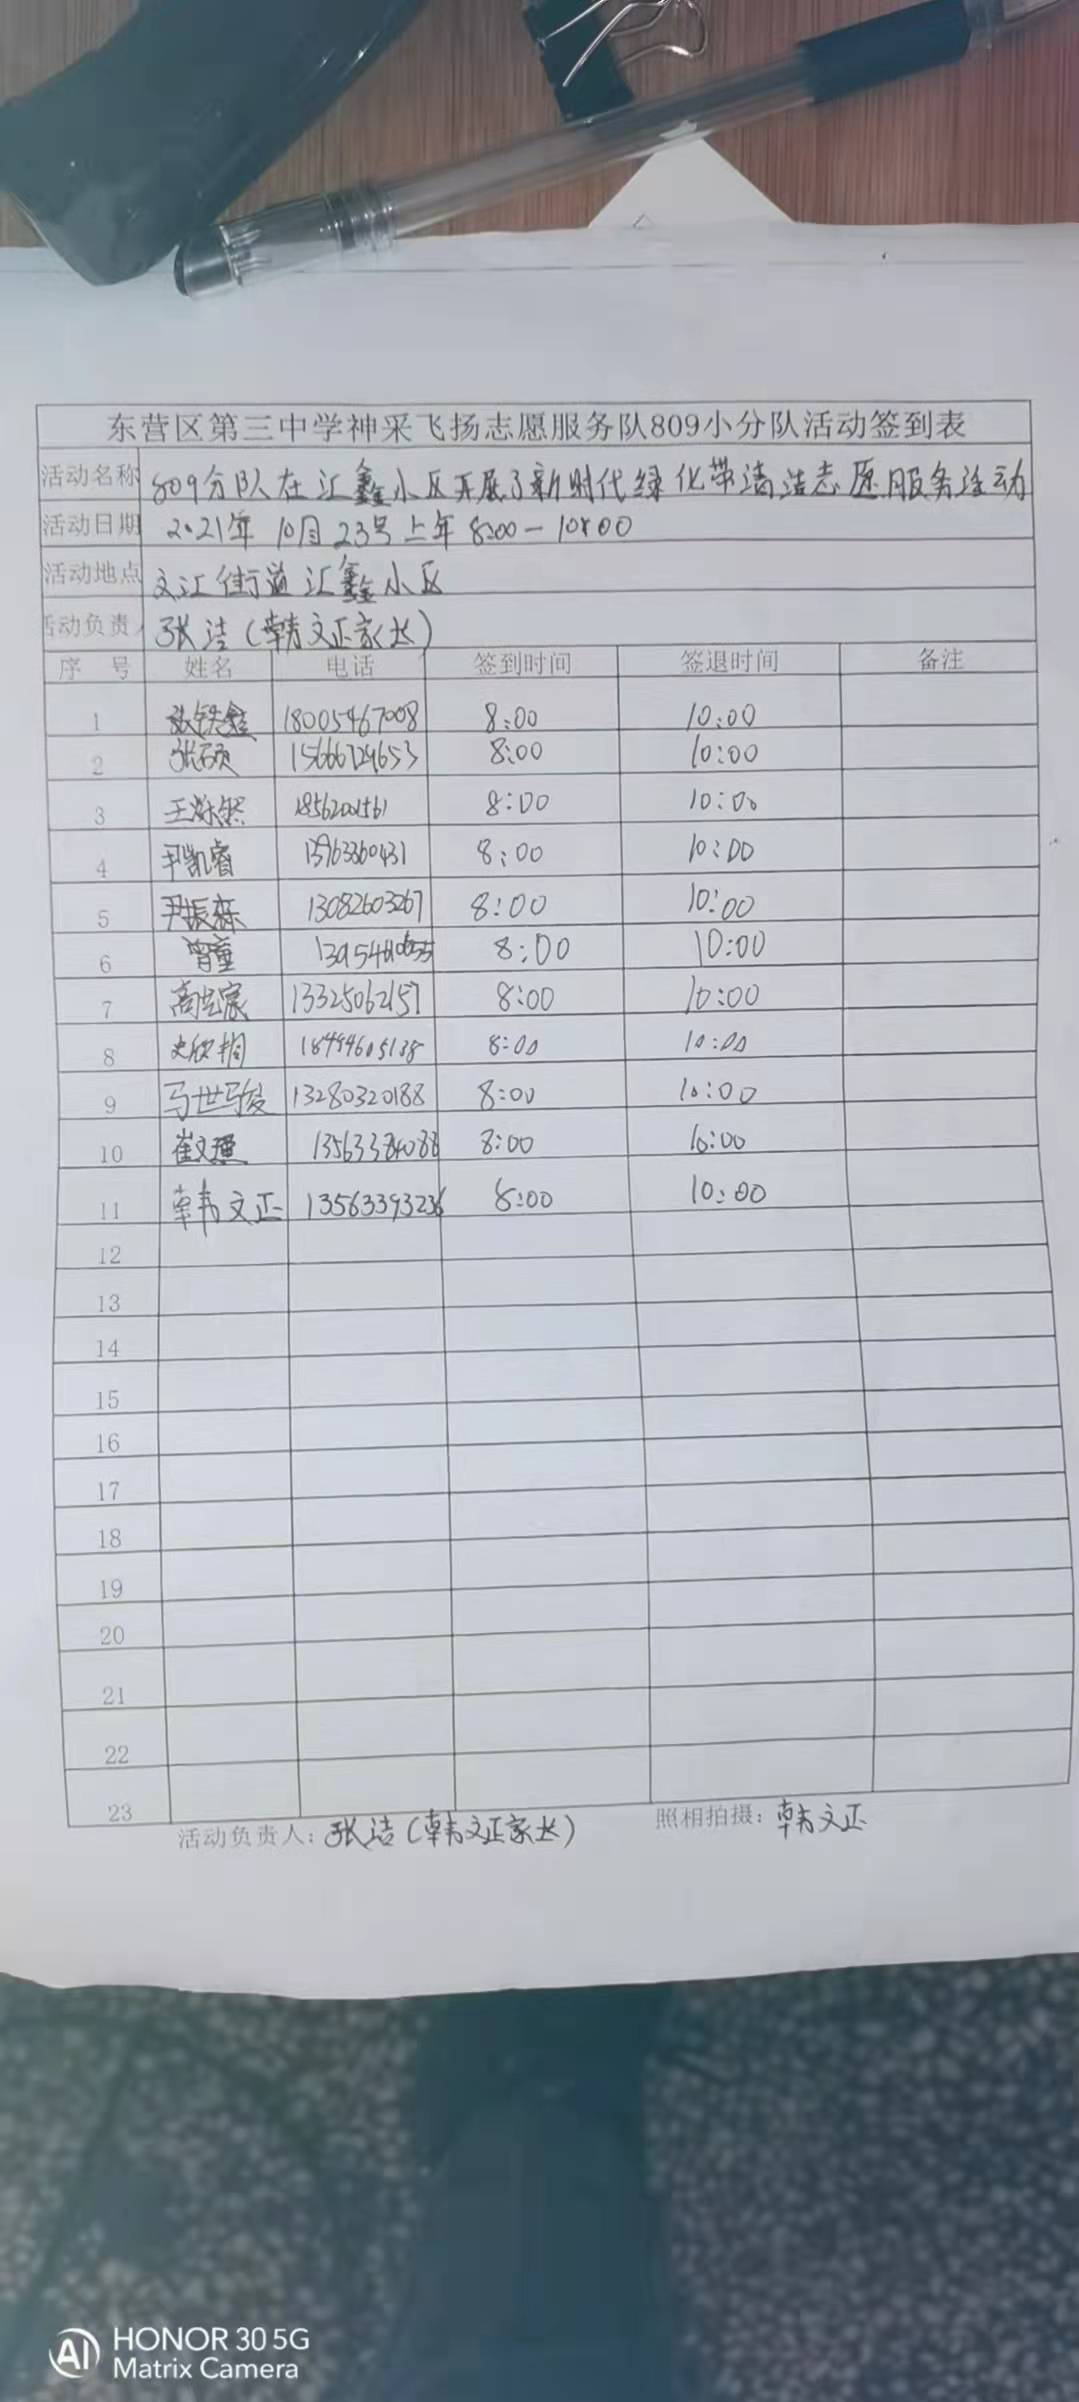 东营区第三中学神采飞扬志愿服务队809小分队活动签到表
活动名称 809分队在汇鑫小区开展了新时代绿化带清洁志愿服务活动
活动日期 2021年 10月23号上年 8:00-10:00
活动地点 文汇街道汇鑫小区
活动负责人 张洁(韩文正家长)
序 号 姓名 电话 签到时间 签退时间 备注
1 18005467008 8:00 10:00
2 张硕 15666729653 8:00 10:00
3 王烁然 18562001561 8:00 10:00
4 尹凯睿 13963360431 8:00 10:00
5 尹振森 13082603267 8:00 10:00
6 曾童 8:00 10:00
7 13325062157 8:00 10:00
8 史欣桐 8:00 10:00
9 马世骏 13280320188 8:00 10:00
10 崔文 13563384088 8:00 10:00
11 韩文正 13563393236 8:00 10:00
12
13
14
15
16
17
18
19
20
21
22
23
活动负责人: 张洁(韩文正家长) 照相拍摄: 韩文正
AI HONOR 30 5G
Matrix Camera